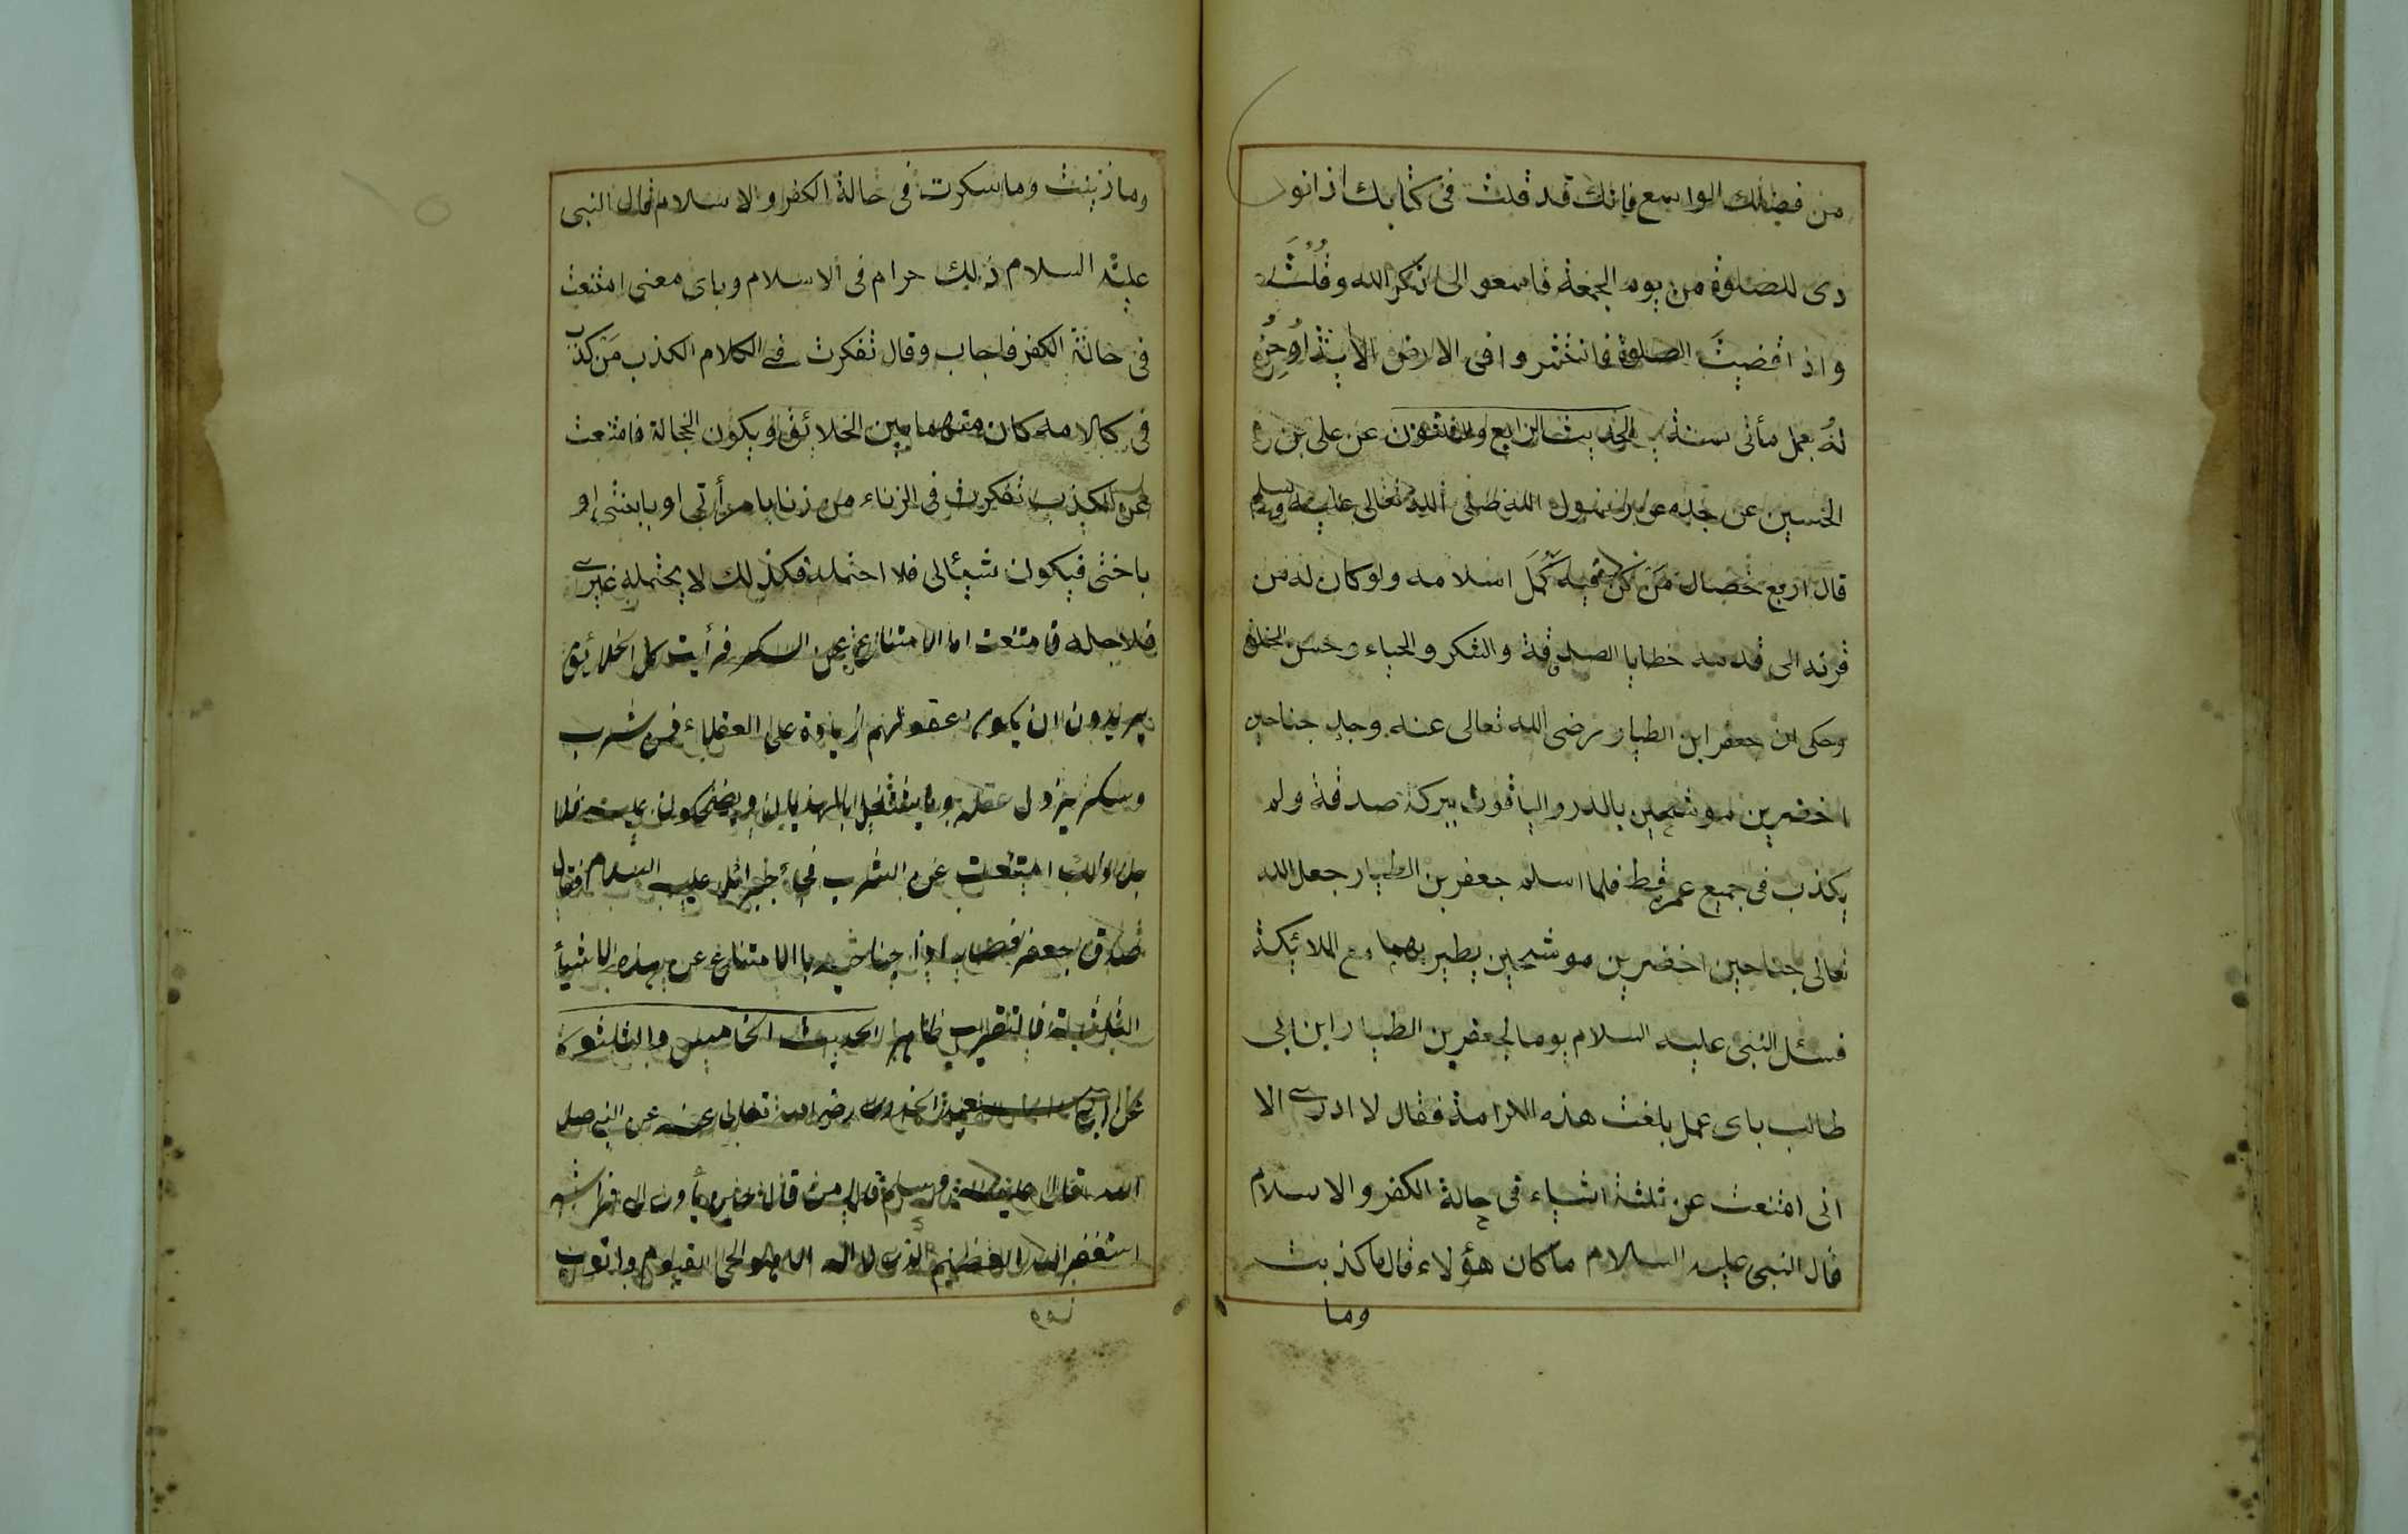 من فضلك الواسع فانك قد قلت فى كتابك اذا نو
دى للصلوة من يوم الجمعة فاسعو الى ذكر الله وقُلْتَ
واذا قضيتَ الصلوة فانتشروا فى الارض الاية
لهُ بعمل مأتى سنة الحديث الرابع والثلثون عن على بن
الحسين عن جده عن رسول الله صلى الله تعالى عليه وسلم
قال اربع خصال مَن كن فيه كَمُلَ اسلامه ولو كان له من
قرنه الى قدمه خطايا الصدقة والشكر والحياء وحسن الخلق
وحكى ان جعفر ابن الطيار رضى الله تعالى عنه وجد جناحين
اخضرين موشحين بالدر والياقوت ببركة صدقة ولم
يكذب فى جميع عمره قط فلما اسلم جعفر بن الطيار جعل الله
تعالى جناحين اخضرين موشحين يطير بهما مع الملائكة
فسئل النبى عليه السلام يوما لجعفر بن الطيار ابن ابى
طالب باى عمل بلغت هذه الكرامة فقال لا ادرى الا
انى امتنعت عن ثلثة اشياء فى حالة الكفر والاسلام
قال النبى عليه السلام ما كان هؤلاء قال ما كذبت
وما
وما زنيت وما سكرت فى حالة الكفر والاسلام قال النبى
عليه السلام ذلك حرام فى الاسلام وباى معنى امتنعت
فى حالة الكفر فاجاب وقال تفكرت فى الكلام الكذب مَن كذب
فى كالامه كان متهما بين الخلائق او يكون الخجالة فامتنعت
عن الكذب تفكرت فى الزناء من زنا بامرأتى او بابنتى او
باختى فيكون شيئا لى فلا احتمله فكذلك لا يحتمله غيرى
فلاجله فامتنعت اما الامتناع عن السكر فرأيت كل الخلائق
يريدون ان يكون عقولهم زيادة على العقلاء فمن شرب
وسكر يزول عقله ويشتغل بالهذيان ويضحكون عليه فلا
جل ذلك امتنعت عن الشرب فجاء جبرائل عليه السلام فقال
صدق جعفر فصاب اذا جناحيه باالامتناع عن هذه الاشيأ
الثلثة الحديث الخامس والثلثون
عن ابى سعيد الخدرى رضى الله تعالى عنه عن النبى صلى
الله تعالى عليه وسلم قال من قال حين يأوى الى فراشه
استغفر الله العظيم الذى لا اله الا هو الحى القيوم واتوب